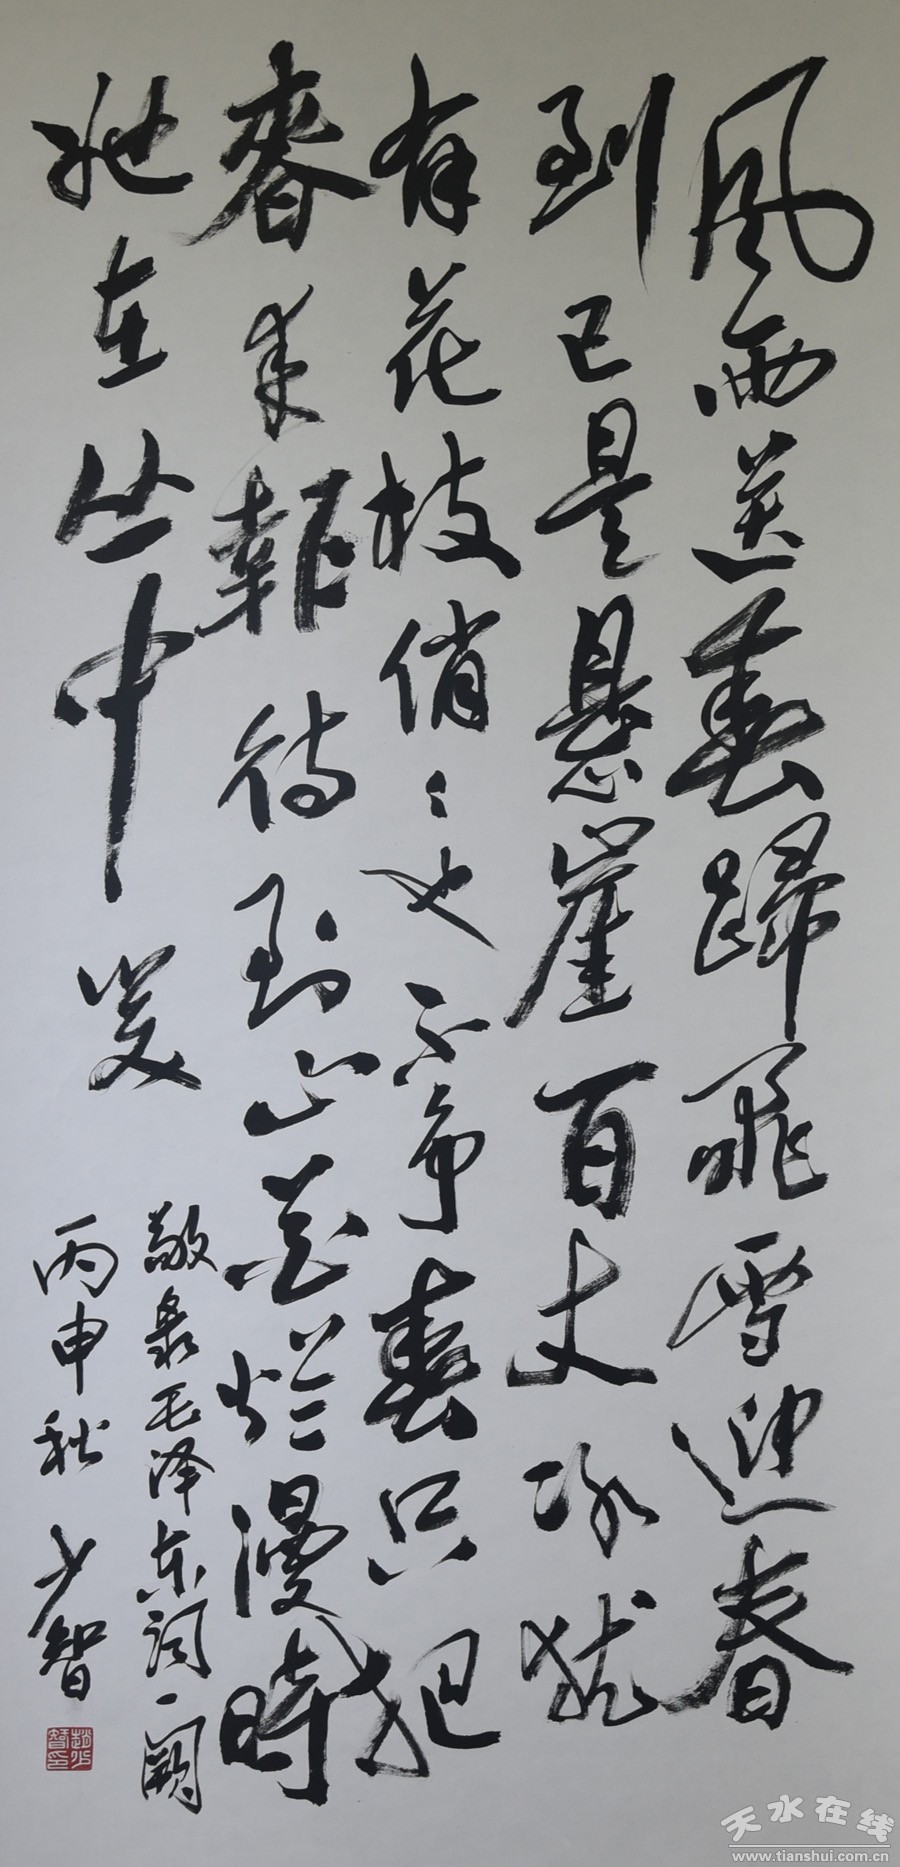 風雨送春歸飛雪迎春
到已是悬崖百丈冰犹
有花枝俏〻也不争春只把
春来報待到山花烂漫時
她在丛中笑
敬录毛泽东词一阕
丙申秋 少智
趙少智印
天水在线
www.tianshui.com.cn